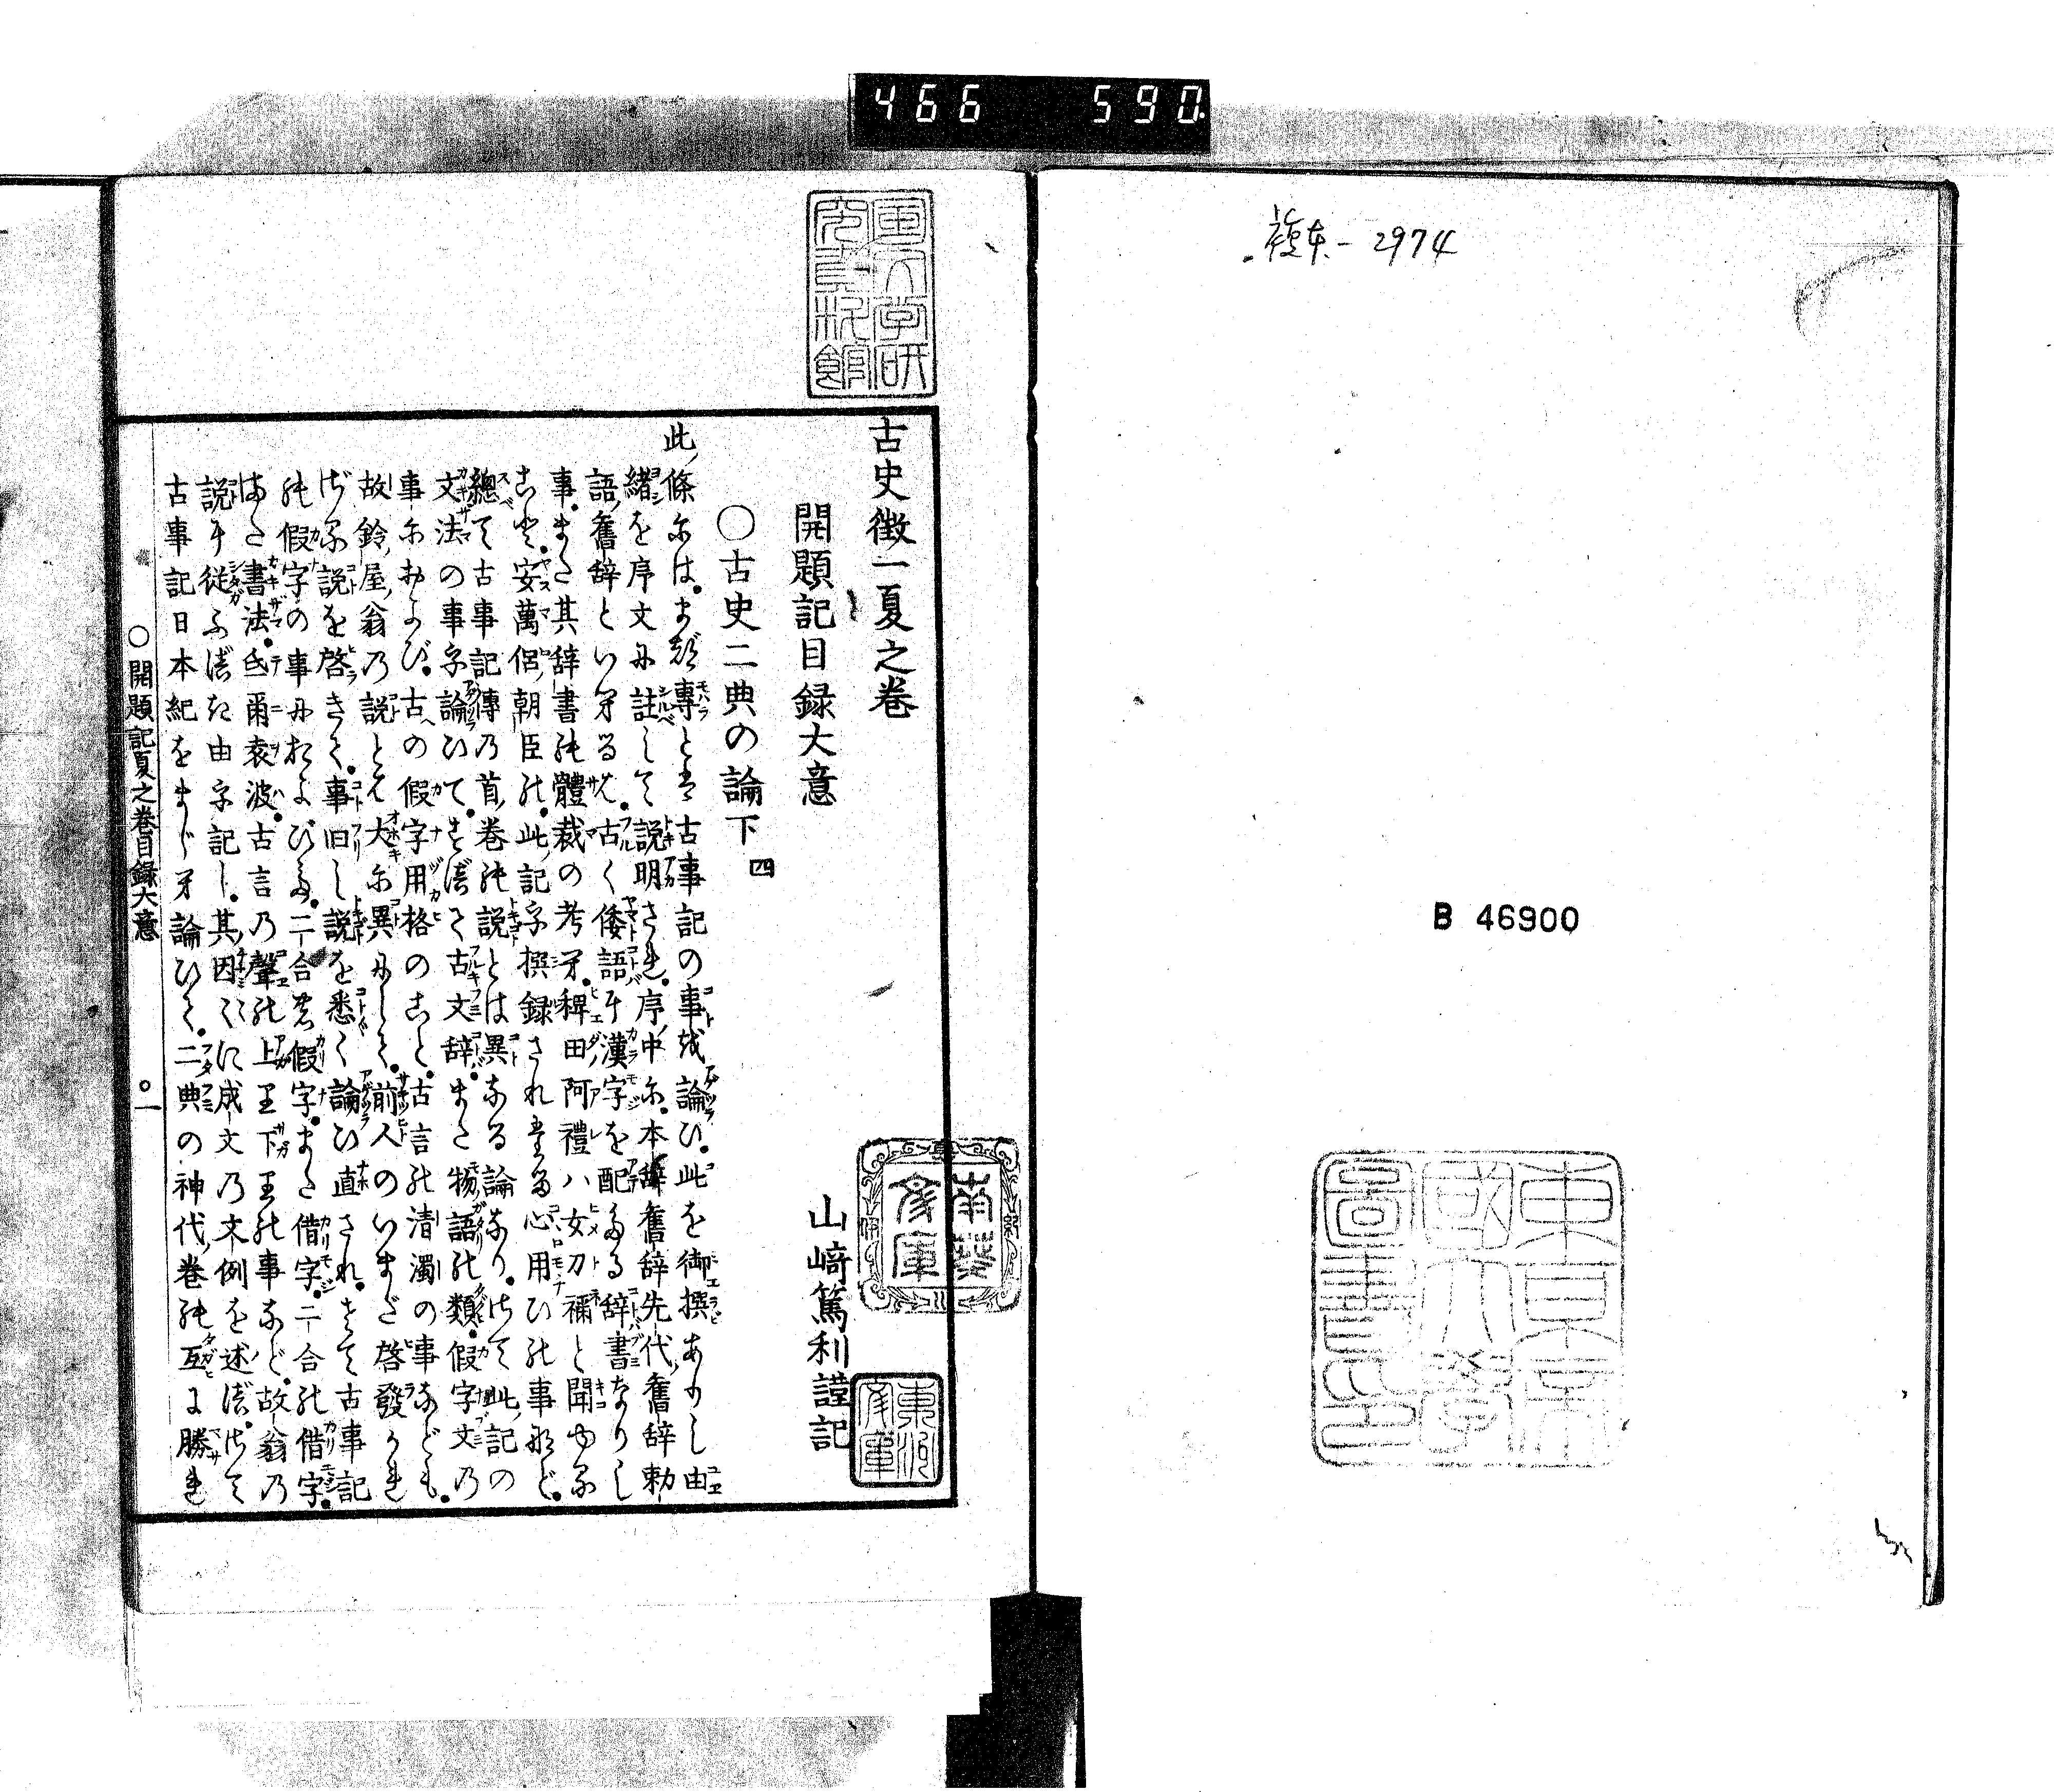 466 590
複本-2974
B 46900
東京帝
国大学
図書印
国文学研
究資料館
南葵
文庫
古史徴一夏之巻
開題記目録大意
山﨑篤利謹記
〇古史二典の論下 四
此條には。まづ專と古事記の事を論ひ。此を御撰ありし由
緒を序文に註して説明され。序中に。本辞舊辞先代舊辞勅
語舊辞といへるは。古く倭語に漢字を配たる辞書なりし
事。また其辞書の體裁の考へ。稗田阿禮ハ女刀禰と聞ゆる
こと。安萬侶朝臣の。此記を撰録されたる心用ひの事など。
總て古事記傳の首卷の説とは異なる論なり。さて此記の
文法の事を論ひて。すべて古文辞。また物語の類。假字文の
事におよび。古の假字用格のこと。古言の清濁の事なども。
故鈴屋翁の説とは大に異にして。前人のいまだ啓發かれ
ざる説を啓きて。事旧し説を悉く論ひ直され。さて古事記
の假字の事におよびる。二合の假字。また借字。二合の借字。
また書法。氐爾袁波。古言の聲の上り下りの事など。故翁の
説に從ふべき由を記し。其因〻に成文の文例を述べ。さて
古事記日本紀をまじへ論ひて。二典の神代卷の互に勝れ
〇開題記夏之巻目録大意 〇一